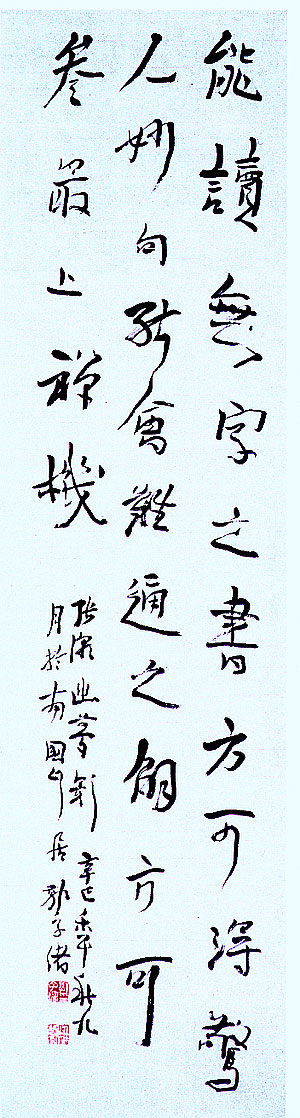 能讀無字之書方可得驚
人妙句能會難通之解方可
參最上禪機
張潮幽夢影 辛巳秋九
月於南國居